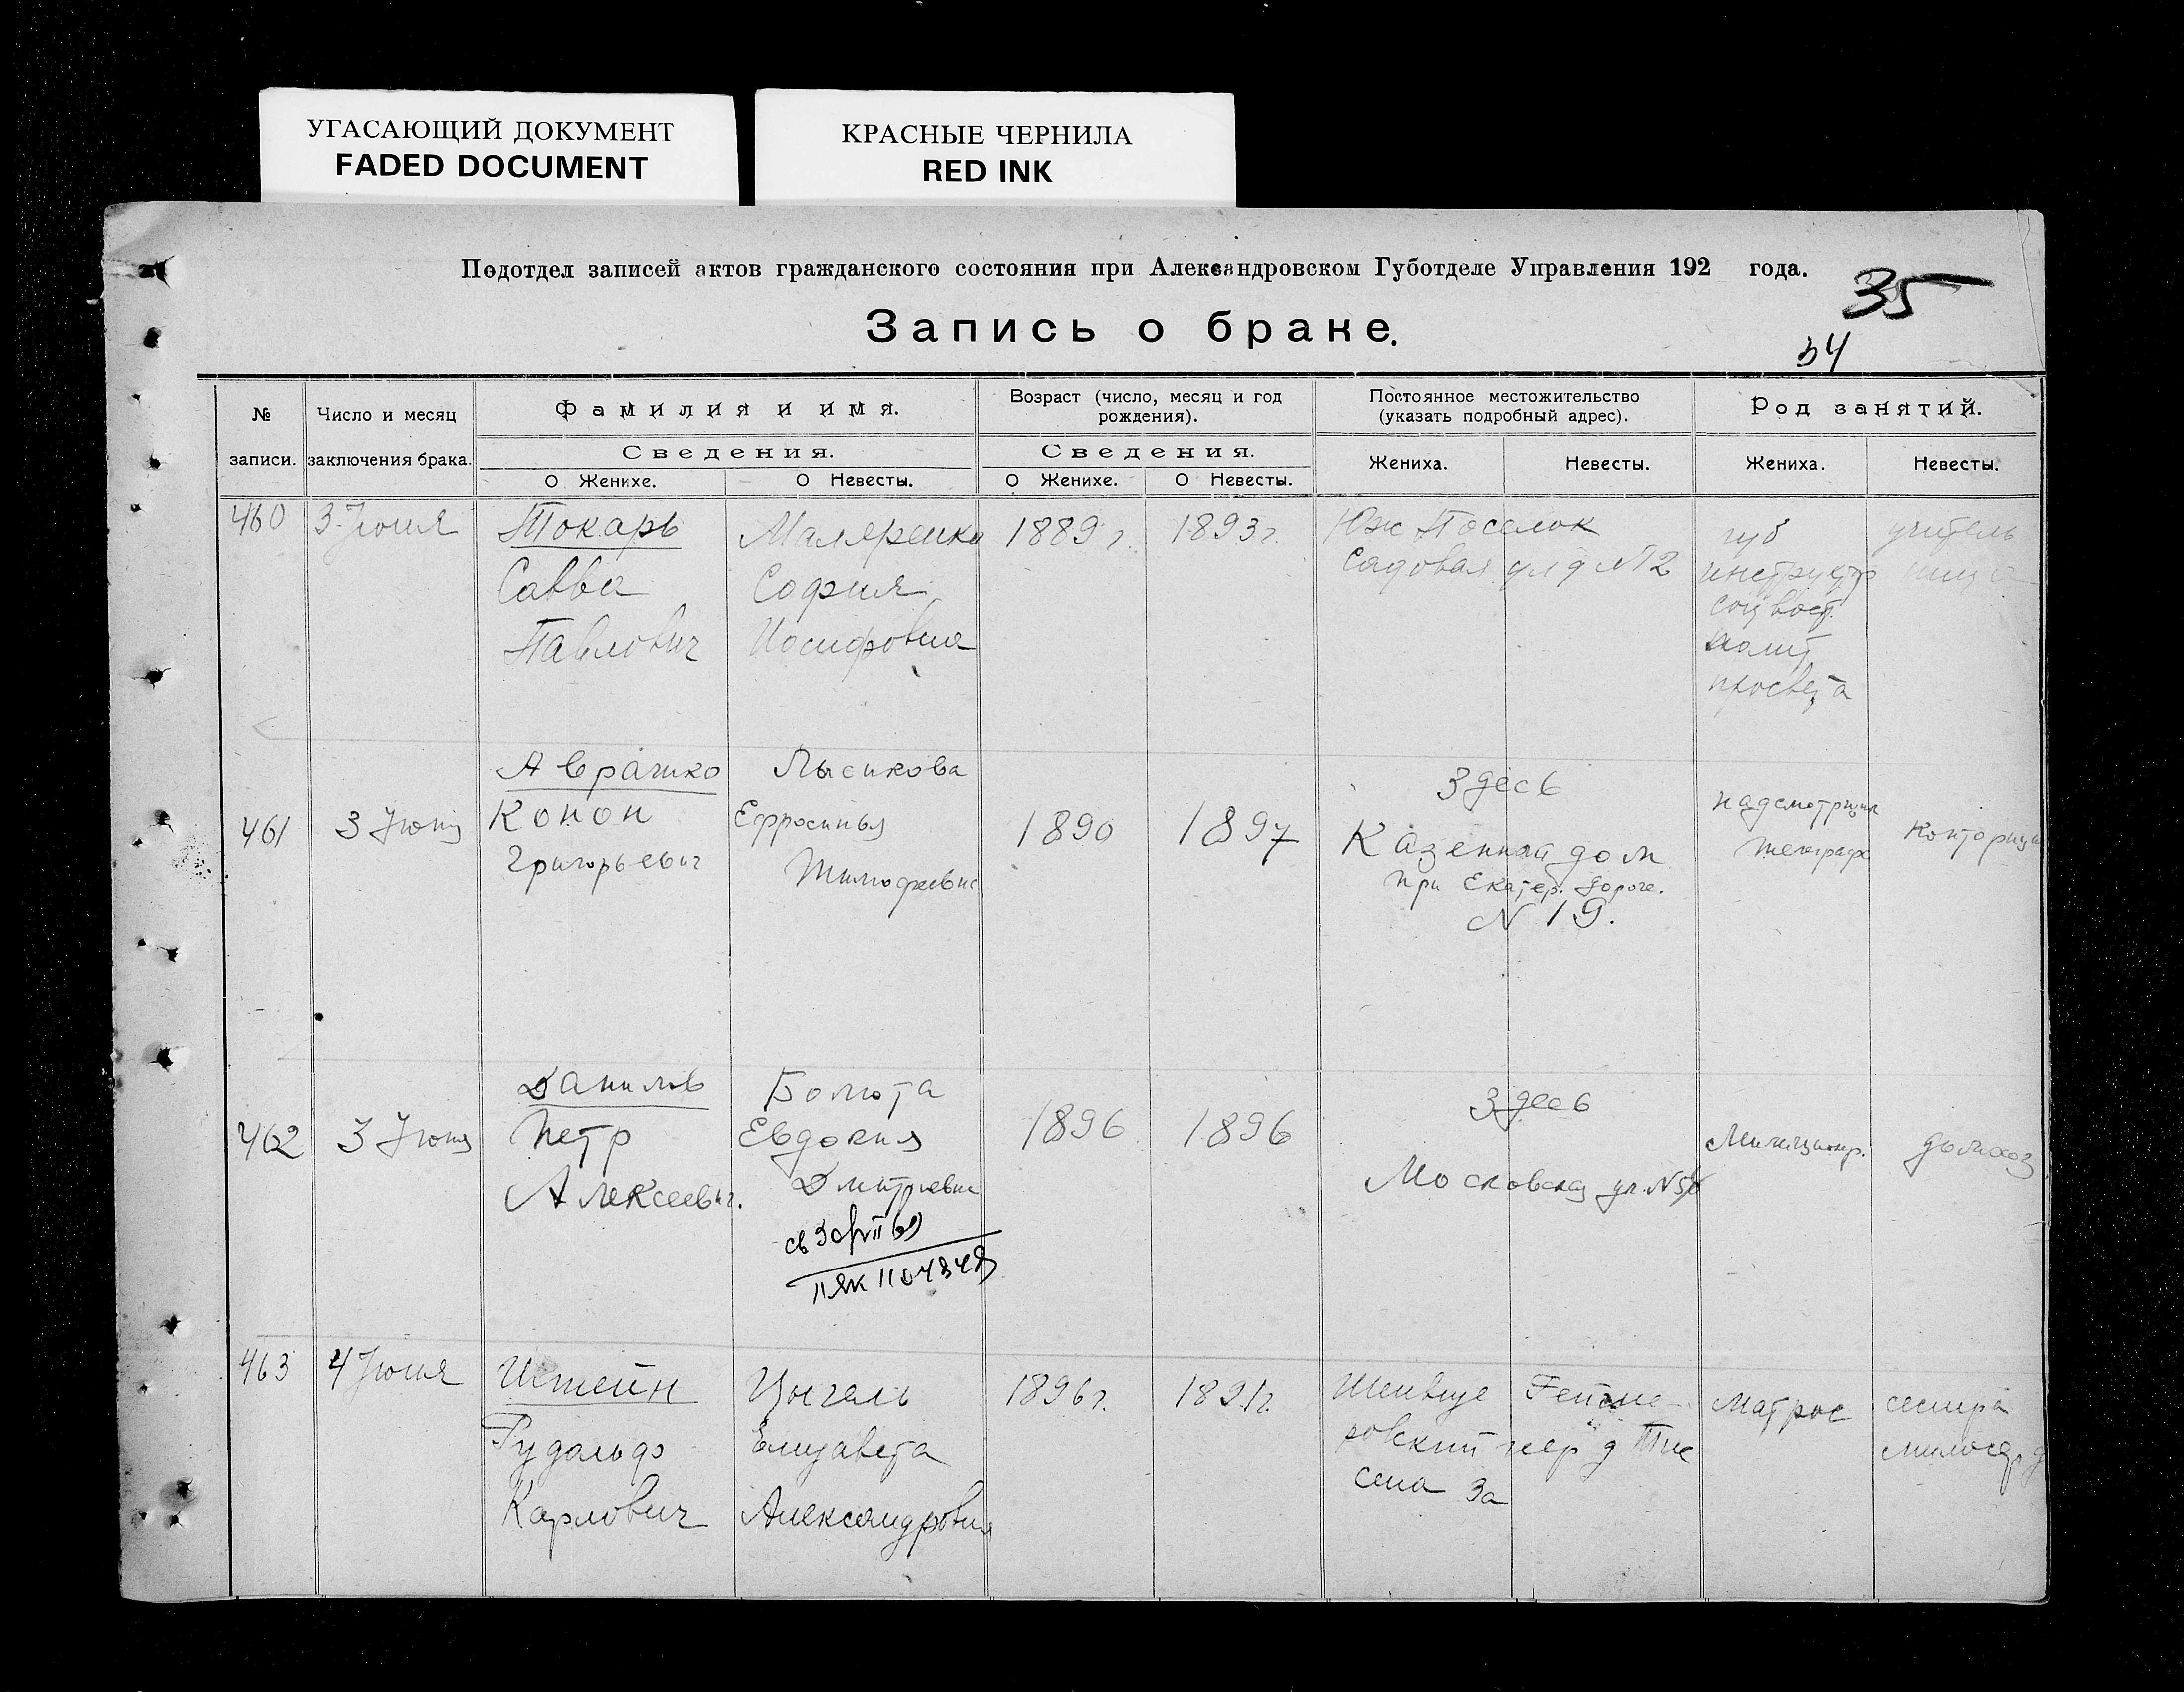 УГАСАЮЩИЙ ДОКУМЕНТ
FADED DOCUMENT
КРАСНЫЕ ЧЕРНИЛА
RED INK
Подотдел записей актов гражданского состояния при Александровском Губотделе Управления 192 года.
35
Запись о браке.
34
№ записи.
Число и месяц заключения брака.
Фамилия и имя.
Сведения.
О Женихе.
О Невесты.
Возраст (число, месяц и год рождения).
Сведения.
О Женихе.
О Невесты.
Постоянное местожительство (указать подробный адрес).
Жениха.
Невесты.
Род занятий.
Жениха.
Невесты.
460
3 Июня
Токарь
Савва
Павлович
Маляренко
София
Иосифовна
1889 г.
1893 г.
Юж Поселок
Садовая ул д №12
губ
инструктр
соцвост.
полит
просвета
учитель
ница
461
3 Июня
Аврашко
Конон
Григорьевич
Лысикова
Ефросинья
Тимофеевна
1890
1897
Здесь
Казенный дом
при Екатер. дороге.
N 19.
надсмотрщик
телеграфа
Конторщица
462
3 Июня
Данилов
Петр
Алексеевич.
Болюта
Евдокия
Дмитриевна
1896
1896
Здесь
Московская ул. N 56
Милиционер.
домхоз
463
4 Июня
Рудольф
Карлович
Елизавета
Александровна
1896 г.
1891 г.
ровский пер д
сена 3а
Матрос
сестра
милосерд